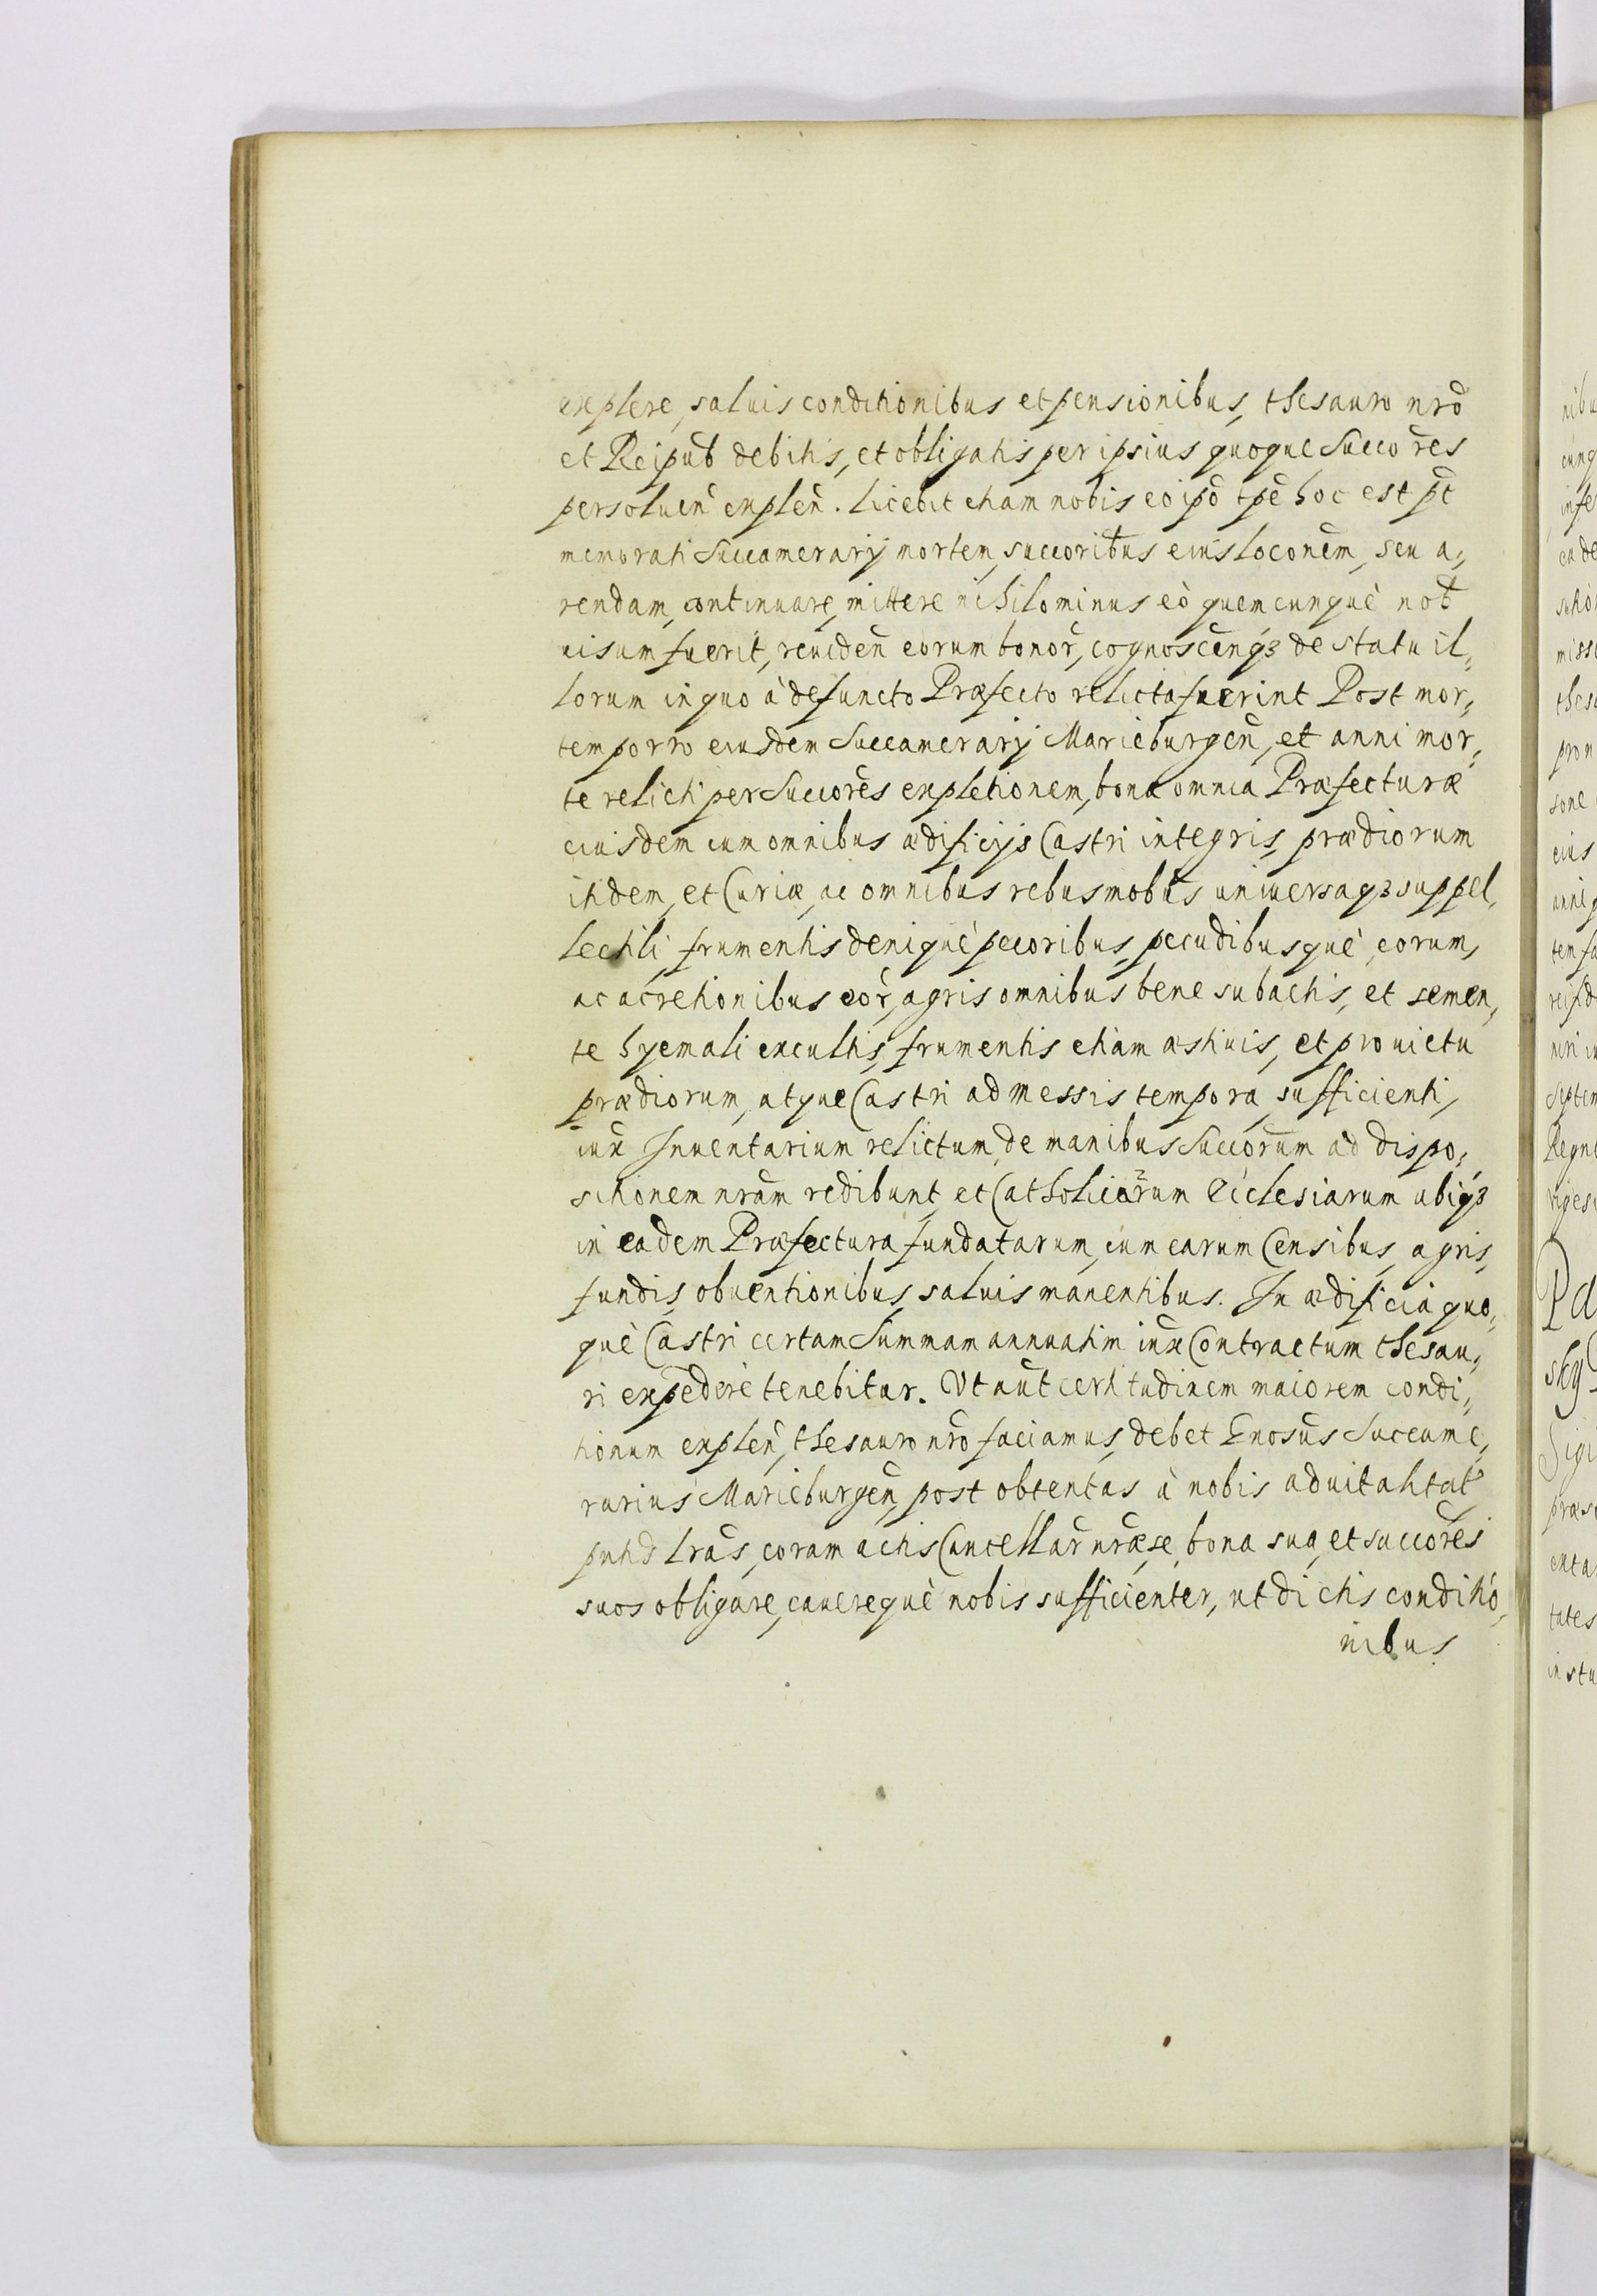 explere, saluis conditionibus et pensionibus, thesauro nrō
et Reipub̄ debitis, et obligatis per ipsius quoque Succo r̄es
persoluen̄ explen̄. Licebit etiam nobis eo ip̄o tp̄e hoc est p̄t
memorati Succamerarij mortem, succorib̄us eius loc̄onem, seu a,,
rendam, continuare, mittere nihilominus eò quemcunquè nob̄
uisum fuerit, reuiden̄ eorum bonor̄, cognoscen̄qꝫ de statu il,,
lorum in quo à defuncto Præfecto relicta fuerint Post mor,,
tem porro eiusdem Succamerarij Marieburgen̄, et anni mor,,
te relicti per Succor̄es expletionem, bona omnia Præfecturæ
eiusdem cum omnibus ædificijs Castri integris, prædiorum
itidem, et Curiæ, ac omnibus rebus mob̄us uniuersaqꝫ suppel,,
lectili frumentis deniquè pecoribus, pecudibusquè, eorum,
ac acretionibus eor̄, agris omnibus bene subactis, et semen,,
te hyemali excultis, frumentis etiam æstiuis, et pro uictu
prædiorum, atque Castri ad messis tempora, sufficienti,
iux̄ Inuentarium relictum, de manibus Succor̄um ad dispo,,
sitionem nram̄ redibunt, et Catholicarum Ecclesiarum ubiqꝫ
in eadem Præfectura fundatarum, cum earum Censibus, agris,
fundis, obuentionibus, saluis manentibus. In ædificia quo,,
què Castri certam Summam annuatim iux̄ Contractum thesau,,
ri expedere tenebitur. Vt aūt certitudinem maiorem condi,,
tionum explen̄, thesauro nrō faciamus, debet Gnosūs Succame,,
rarius Marieburgen̄, post obtentas à nobis aduitalitat̄
pntīs lrās, coram actis Cancellar̄ nrǣ se, bona sua, et succor̄es
suos obligare, cauerequè nobis sufficienter, ut dictis conditio,,
nibus